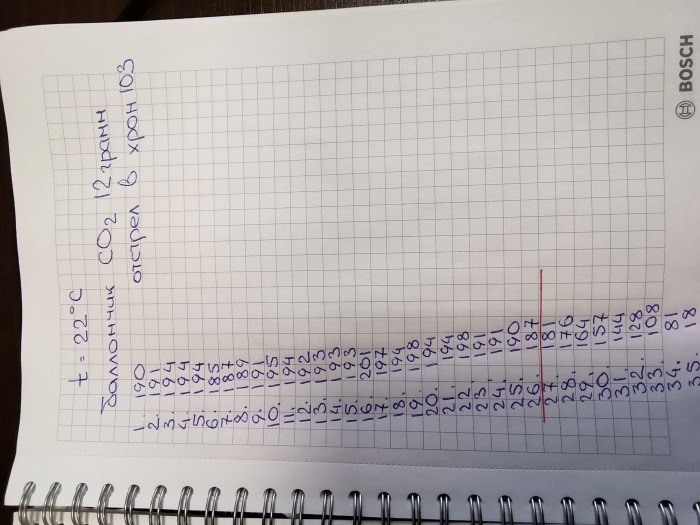 t = 22°C
баллончик CO2 12 грамм
отстрел в хрон 103
1. 190
2. 191
3. 194
4. 194
5. 194
6. 185
7. 187
8. 189
9. 191
10. 195
11. 194
12. 192
13. 193
14. 193
15. 193
16. 201
17. 197
18. 194
19. 198
20. 194
21. 194
22. 198
23. 191
24. 191
25. 190
26. 187
27. 181
28. 176
29. 164
30. 157
31. 144
32. 128
33. 108
34. 81
35. 18
BOSCH